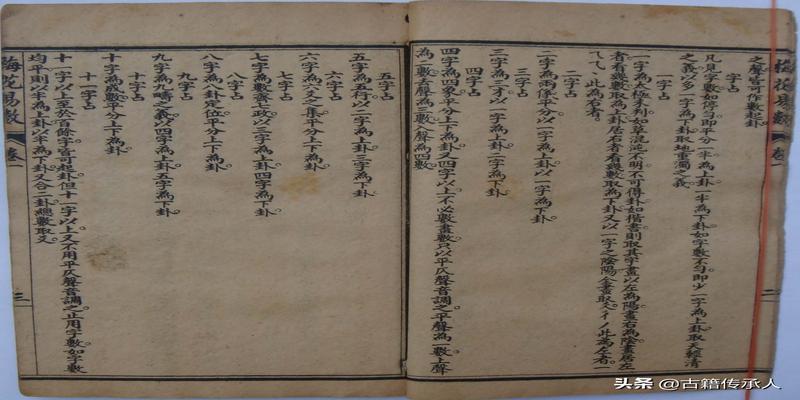 之聲皆可作數起卦
字占
凡見字數停勻即平分一半為上卦一半為下卦如字數不勻即少一字為上卦取天輕清
之義以多一字為下卦取地重濁之義
一字占
一字為太極未判如草混沌不明不可得卦如楷書則取其字畫以左為陽畫右為陰畫居左
者看幾數取為上卦居右者看幾數取為下卦又以一字之陰陽全畫取爻彳丿此為左者一
乀乁此為右者
二字占
二字為兩儀平分以一字為上卦以一字為下卦
三字占
三字為三才以一字為上卦二字為下卦
四字占
四字為四象平分上下為卦又四字以上不必數畫數只以平仄聲音調之平聲為一數上聲
為二數去聲為三數入聲為四數
五字占
五字為五行以二字為上卦三字為下卦
六字占
六字為六爻之集平分上下為卦
七字占
七字為數齊政以三字為上卦四字為下卦
八字占
八字為八卦定位平分上下為卦
九字占
九字為九疇之義以四字為上卦五字為下卦
十字占
十字為成數平分上下為卦
十一字占
十一字以上至於百餘字皆可起卦但十一字以上又不用平仄聲音調之止用字數如字數
均平則以半為上卦以半為下卦又合二卦總數取爻
梅花易數 卷一 三
梅花易數 卷一 二
头条 @古籍传承人